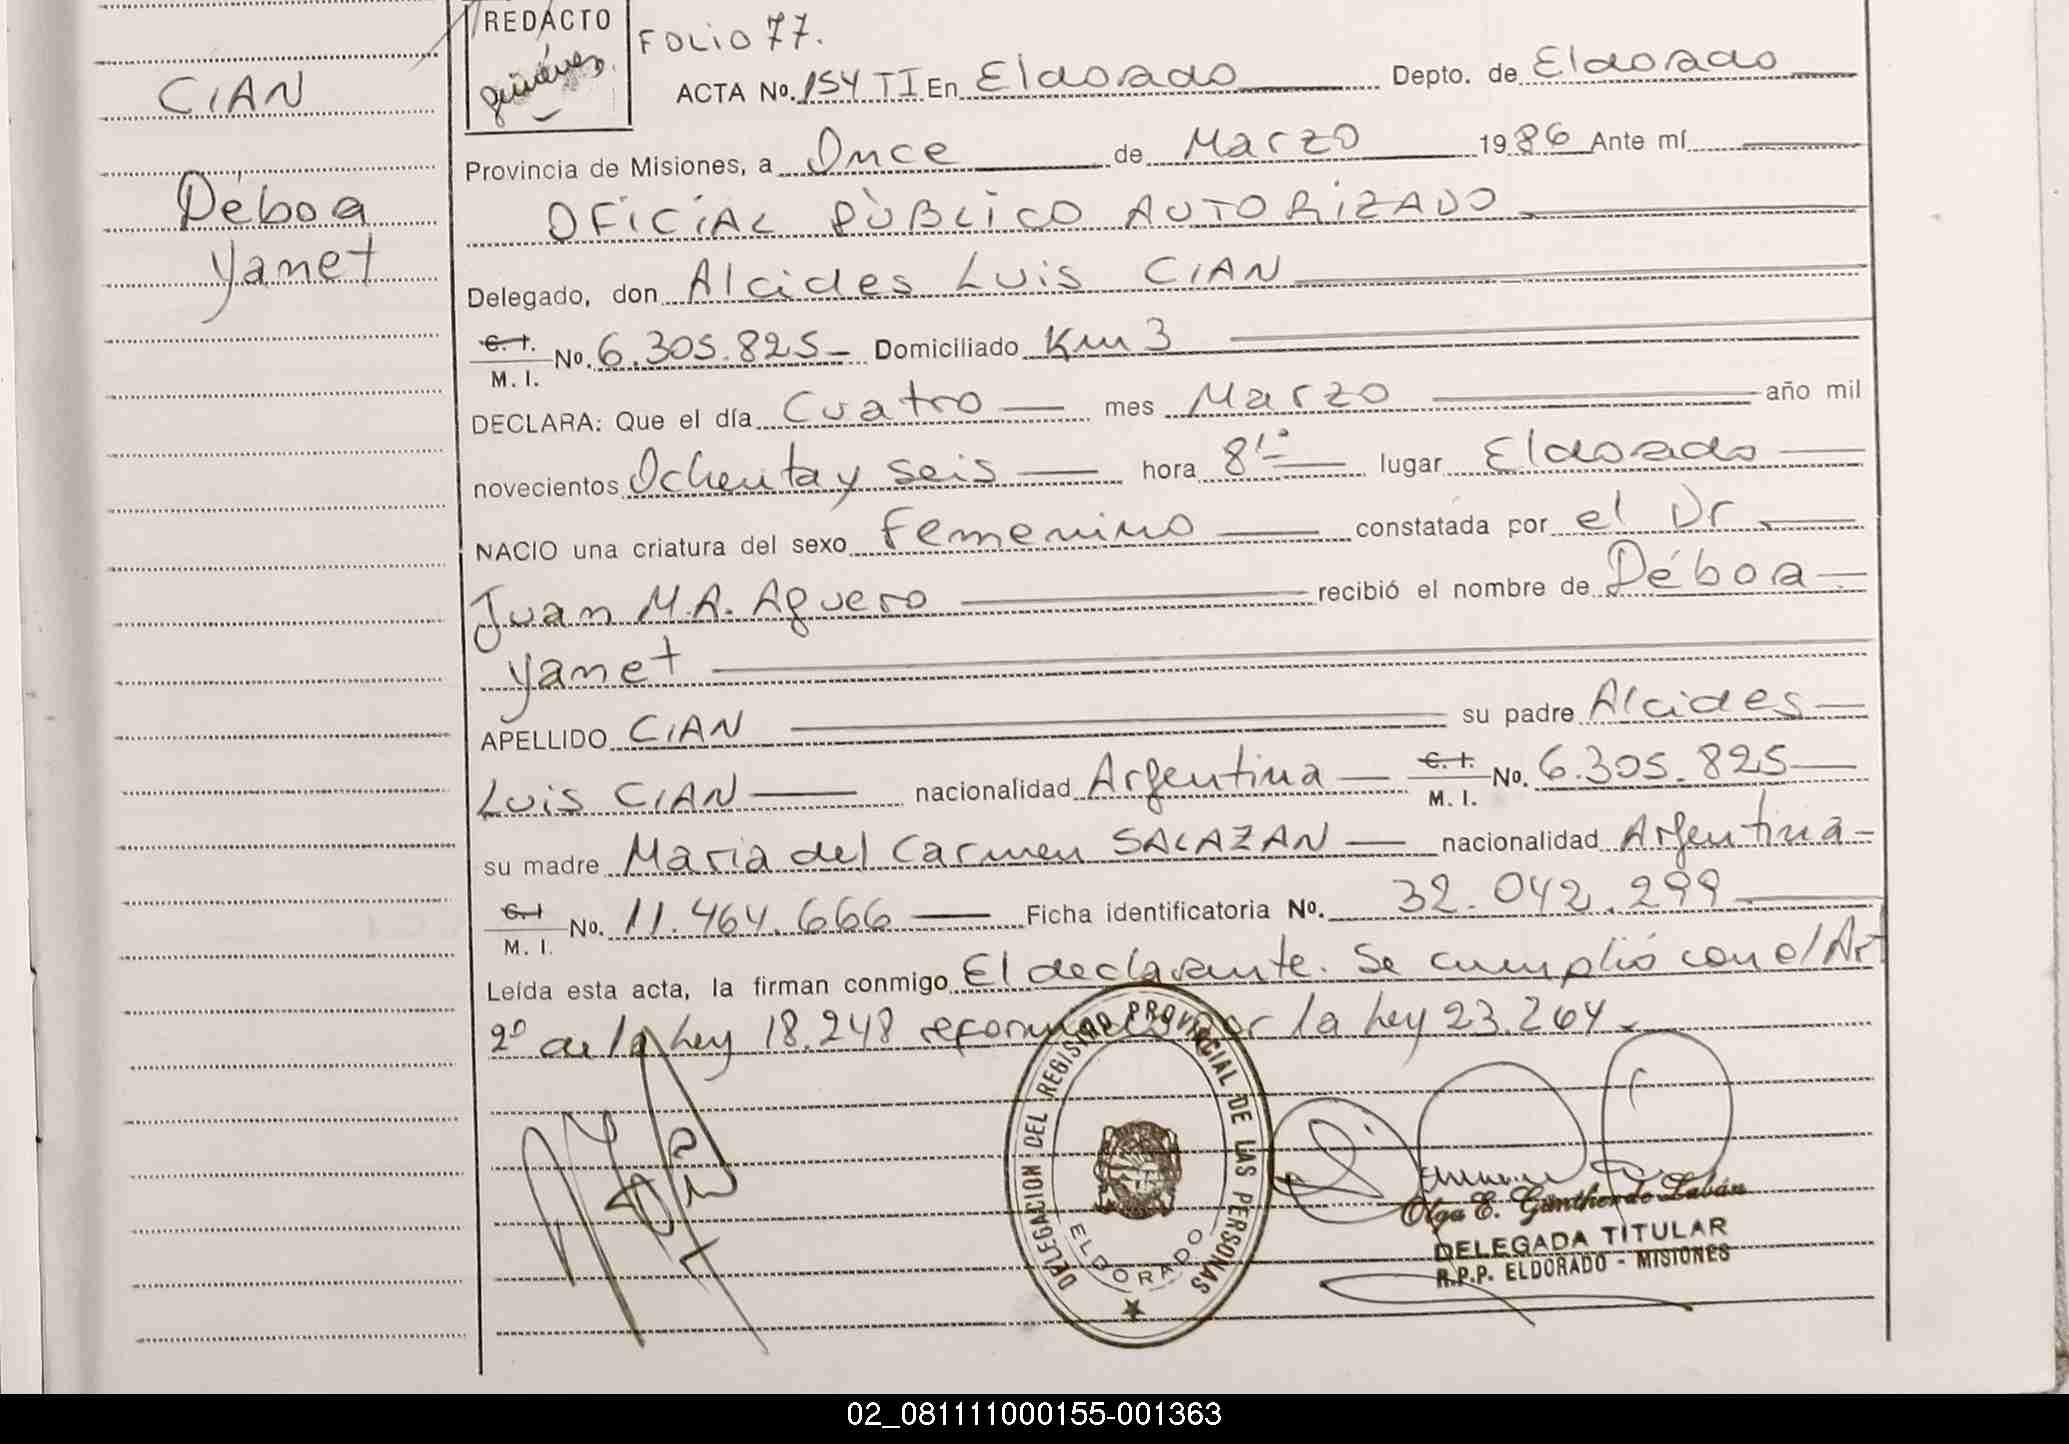 REDACTO
FOLIO 77.
CIAN
Déboa
Yanet
ACTA No. 154 TI En Eldorado Depto. de Eldorado
Provincia de Misiones, a Once de Marzo 1986 Ante mí
OFICIAL PÚBLICO AUTORIZADO
Delegado, don Alcides Luis CIAN
C. I. / M. I. No. 6.305.825 Domiciliado Km 3
DECLARA: Que el día Cuatro mes Marzo año mil
novecientos Ochenta y seis hora 8 lugar Eldorado
NACIO una criatura del sexo Femenino constatada por el Dr
Juan M.A. Aguero recibió el nombre de Déboa
Yanet
APELLIDO CIAN su padre Alcides
Luis CIAN nacionalidad Argentina C. I. / M. I. No. 6.305.825
su madre Maria del Carmen SALAZAN nacionalidad Argentina
C. I / M. I. No. 11.464.666 Ficha identificatoria No. 32.042.299
Leída esta acta, la firman conmigo El declarante. Se cumplió con el Art
2º de la Ley 18.248 reformada por la Ley 23.264.
DELEGACION DEL REGISTRO PROVINCIAL DE LAS PERSONAS
ELDORADO
Olga E. Günther de Labán
DELEGADA TITULAR
R.P.P. ELDORADO - MISIONES
02_081111000155-001363